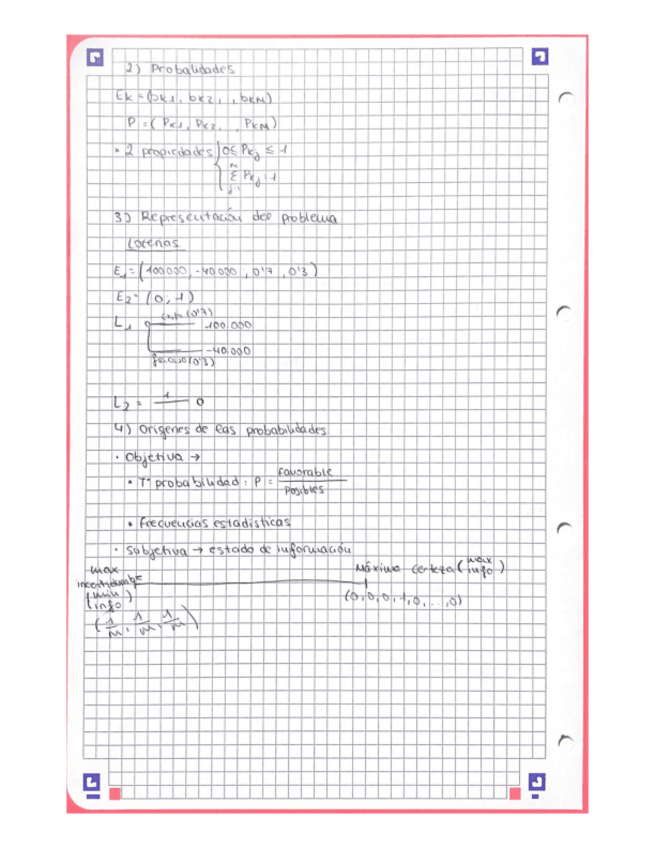 2) Probalidades
Ek = (bk1, bk2, , bkM)
P = (Pk1, Pk2, , PkM)
• 2 propiedades { 0 ≤ Pkj ≤ 1
Σ Pkj = 1
3) Representación del problema
Loterías
E1 = (100000, -40000, 0'7, 0'3)
E2 = (0, 1)
L1 (0'7) 100.000
-40.000
fracaso (0'3)
L2 = 1 0
4) Orígenes de las probabilidades
· Objetiva →
• Tª probabilidad: P = favorable / posibles
• frecuencias estadísticas
· Subjetiva → estado de información
max incertidumbre (min info)
Máxima certeza (max info)
(0, 0, 0, 1, 0, ..., 0)
(1/m, 1/m, 1/m)